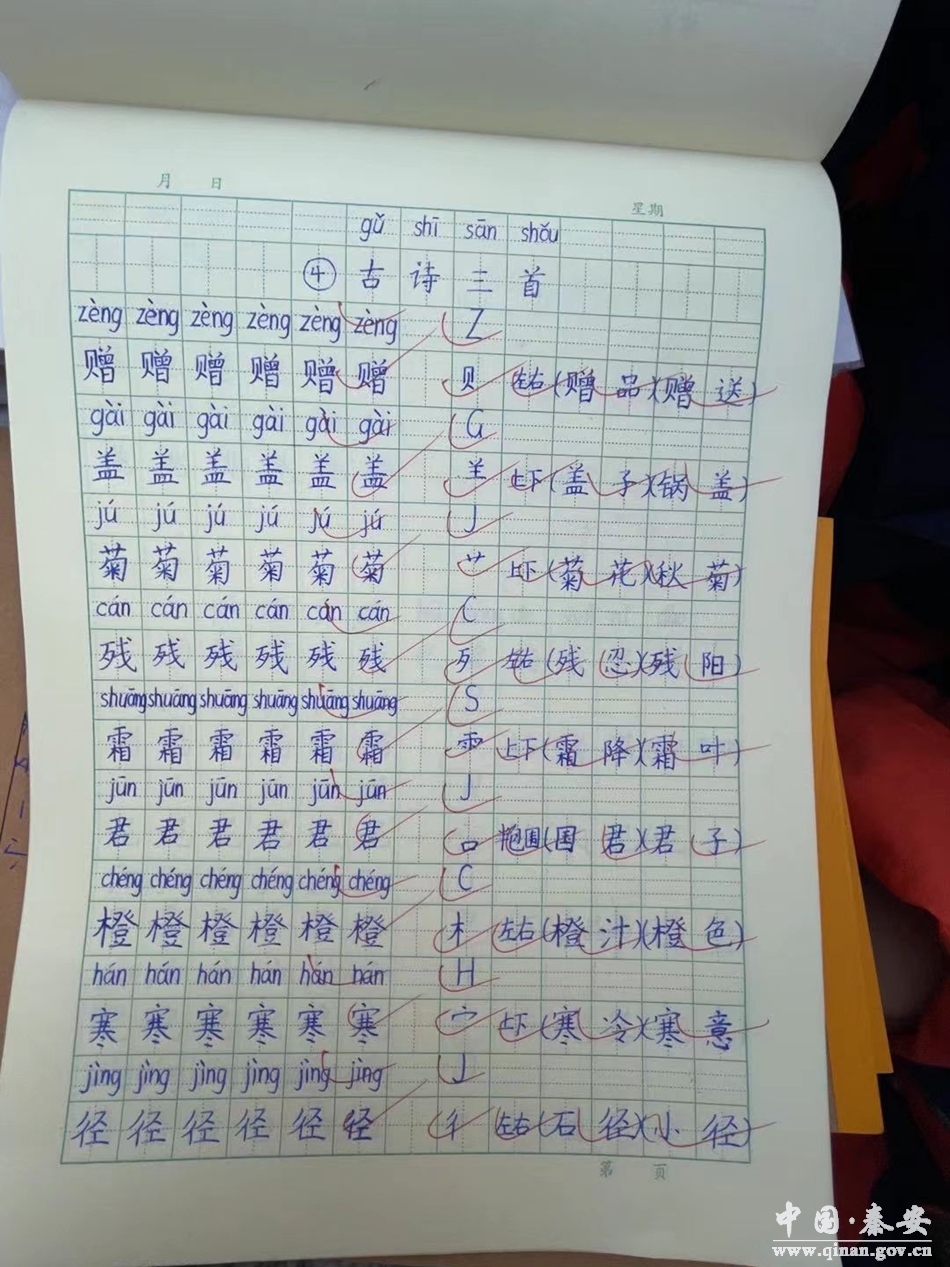 月 日 星期
gǔ shī sān shǒu
④ 古 诗 三 首
zèng zèng zèng zèng zèng zèng Z
赠 赠 赠 赠 赠 赠 贝 左右 (赠 品)(赠 送)
gài gài gài gài gài gài G
盖 盖 盖 盖 盖 盖 𦍌 上下 (盖 子)(锅 盖)
jú jú jú jú jú jú J
菊 菊 菊 菊 菊 菊 艹 上下 (菊 花)(秋 菊)
cán cán cán cán cán cán C
残 残 残 残 残 残 歹 左右 (残 忍)(残 阳)
shuāng shuāng shuāng shuāng shuāng shuāng S
霜 霜 霜 霜 霜 霜 ⻗ 上下 (霜 降)(霜 叶)
jūn jūn jūn jūn jūn jūn J
君 君 君 君 君 君 口 半包围 (国 君)(君 子)
chéng chéng chéng chéng chéng chéng C
橙 橙 橙 橙 橙 橙 木 左右 (橙 汁)(橙 色)
hán hán hán hán hán hán H
寒 寒 寒 寒 寒 寒 宀 上下 (寒 冷)(寒 意
jìng jìng jìng jìng jìng jìng J
径 径 径 径 径 径 彳 左右 (石 径)(小 径)
第 页
中国·秦安
www.qinan.gov.cn